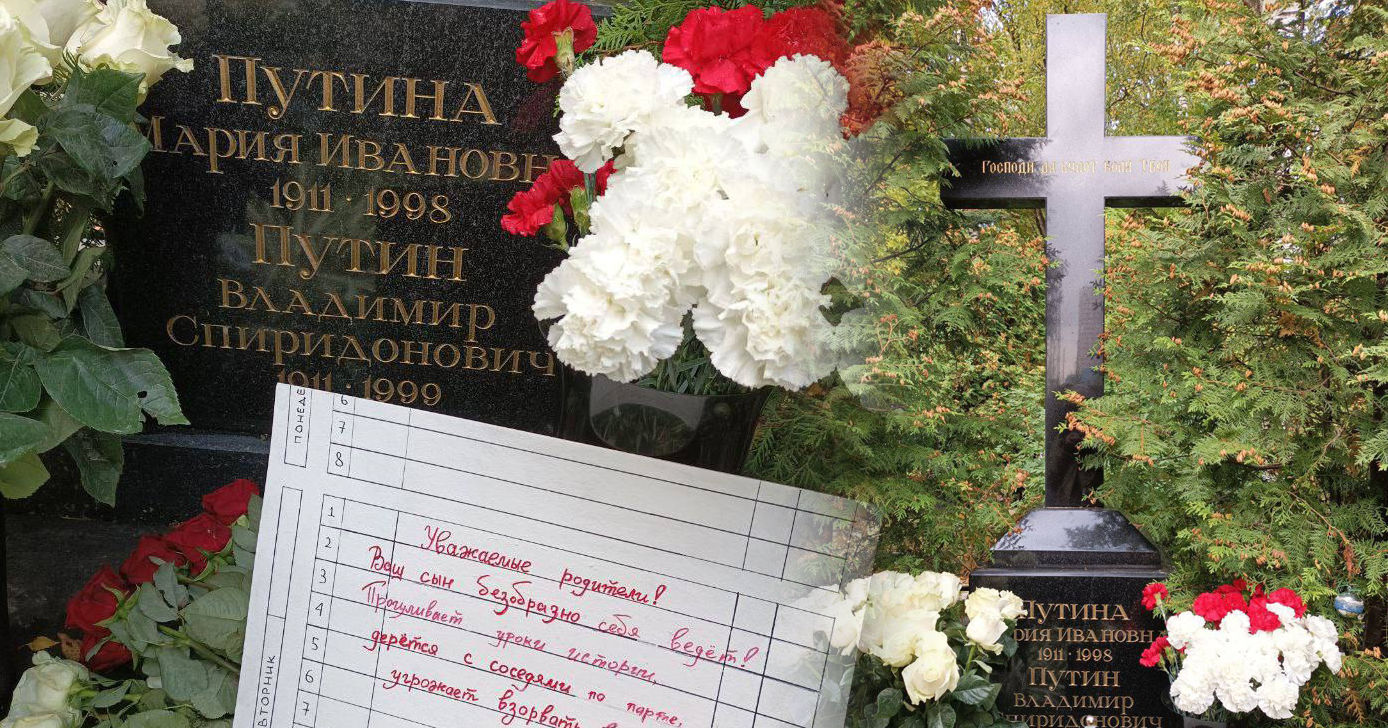 ПУТИНА
МАРИЯ ИВАНОВН
1911 · 1998
ПУТИН
ВЛАДИМИР
СПИРИДОНОВИЧ
1911 · 1999
ПОНЕДЕ
6
7
8
ВТОРНИК
1
2
3
4
5
6
7
Уважаемые родители!
Ваш сын безобразно себя ведёт!
Прогуливает уроки истории,
дерётся с соседями по парте,
угрожает взорвать
Господи да будет воля Твоя
ПУТИНА
РИЯ ИВАНОВН
1911 · 1998
ПУТИН
ВЛАДИМИР
ПИРИДОНОВИЧ